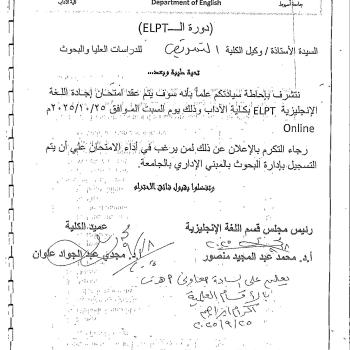 جامعة أسيوط
Department of English
كلية الآداب
(دورة الـــELPT)
السيدة الأستاذة / وكيل الكلية للدراسات العليا والبحوث
تحية طيبة وبعد...
نتشرف بإحاطة سيادتكم علماً بأنه سوف يتم عقد امتحان إجادة اللغة
الإنجليزية ELPT بكلية الآداب وذلك يوم السبت الموافق ٢٠٢٥/١٠/٢٥م
Online
رجاء التكرم بالإعلان عن ذلك لمن يرغب في أداء الامتحان علي أن يتم
التسجيل بإدارة البحوث بالمبني الإداري بالجامعة.
وتفضلوا بقبول فائق الاحترام
رئيس مجلس قسم اللغة الإنجليزية
عميد الكلية
أ.د. محمد عبد المجيد منصور
أ.د. مجدي عبد الجواد علوان
يعلم على السادة معاوني هيئة
بالأقسام العلمية
٢٠٢٥/٩/٢٥